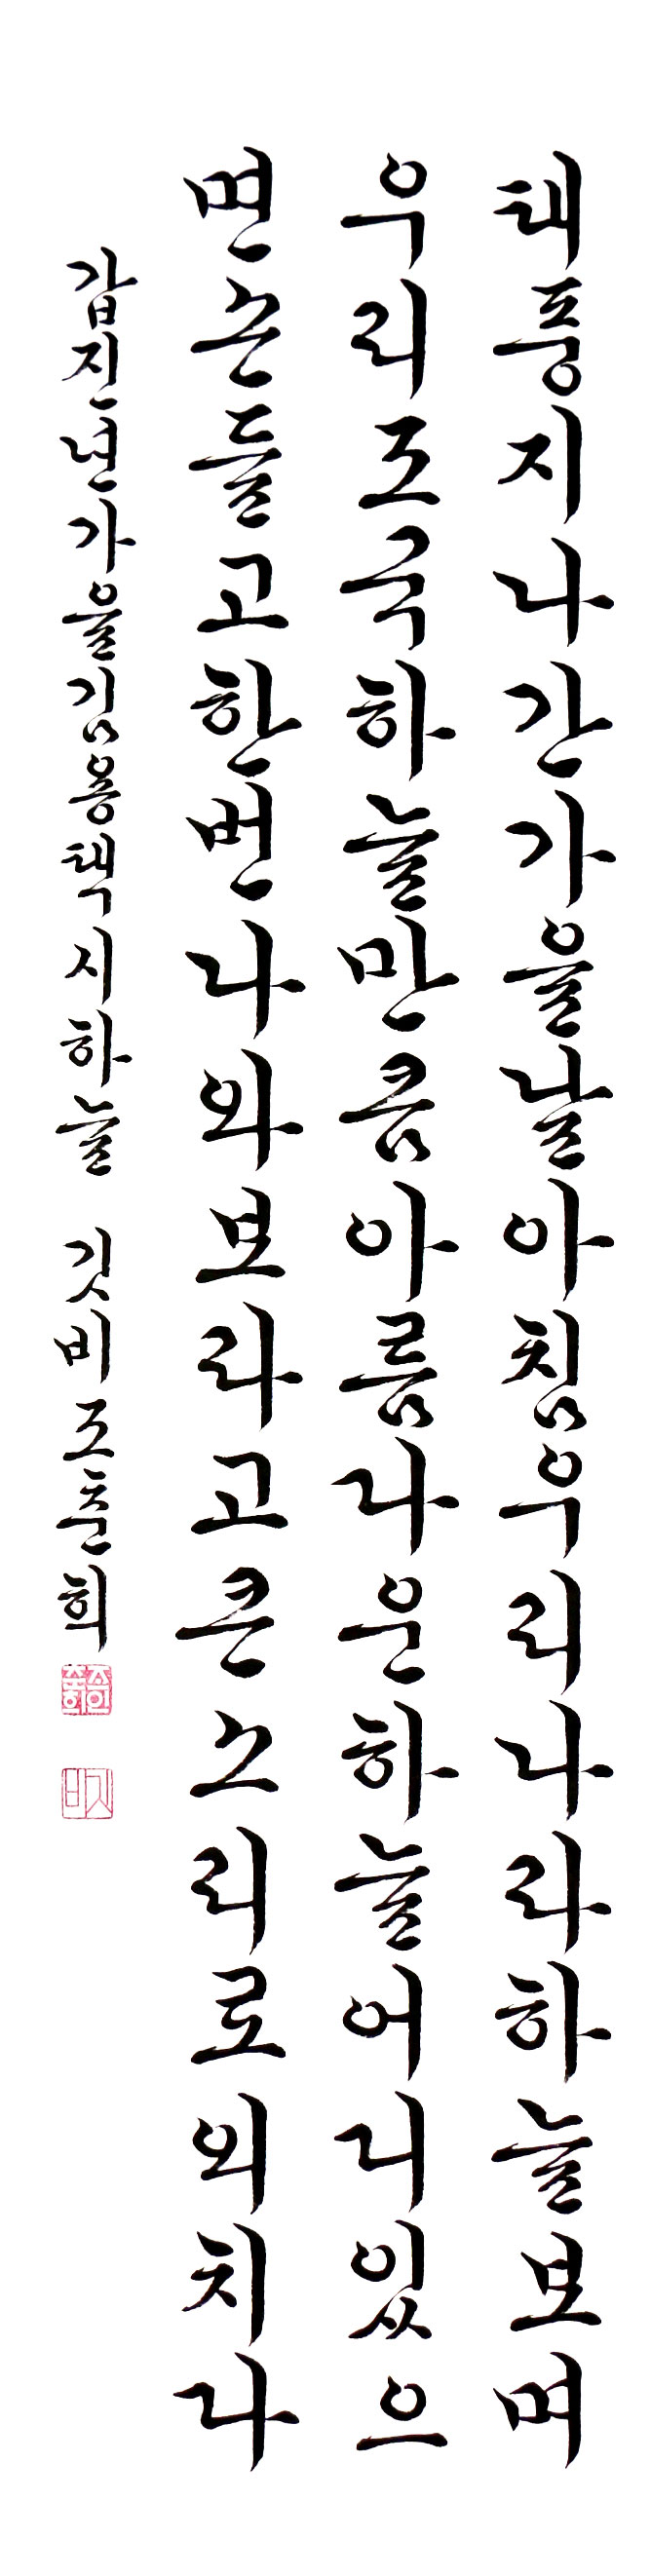 태풍지나간가을날아침우리나라하늘보며
우리조국하늘만큼아름다운하늘어디있으
면손들고한번나와보라고큰소리로외치다
갑진년가을김용택시하늘 깃비조춘희
깃비